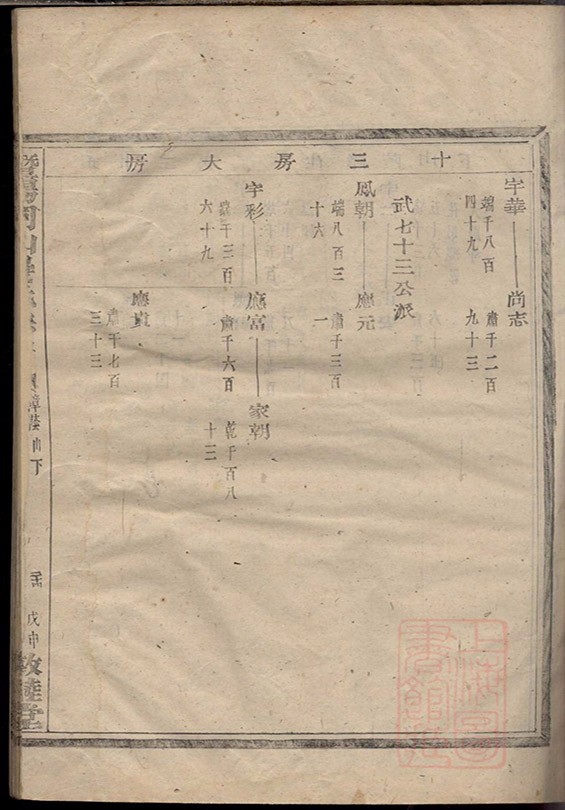 十三房大房
宇華——尚志
端千八百
四十九
肅千二百
九十三
武七十三公派
鳳朝——應元
端八百三
十六
肅千三百
一
宇彩——應富——家朝
端千三百
六十九
肅千六百
乾千百八
十三
應貴
肅千七百
三十三
下
戊申
敦睦堂
上海圖書館